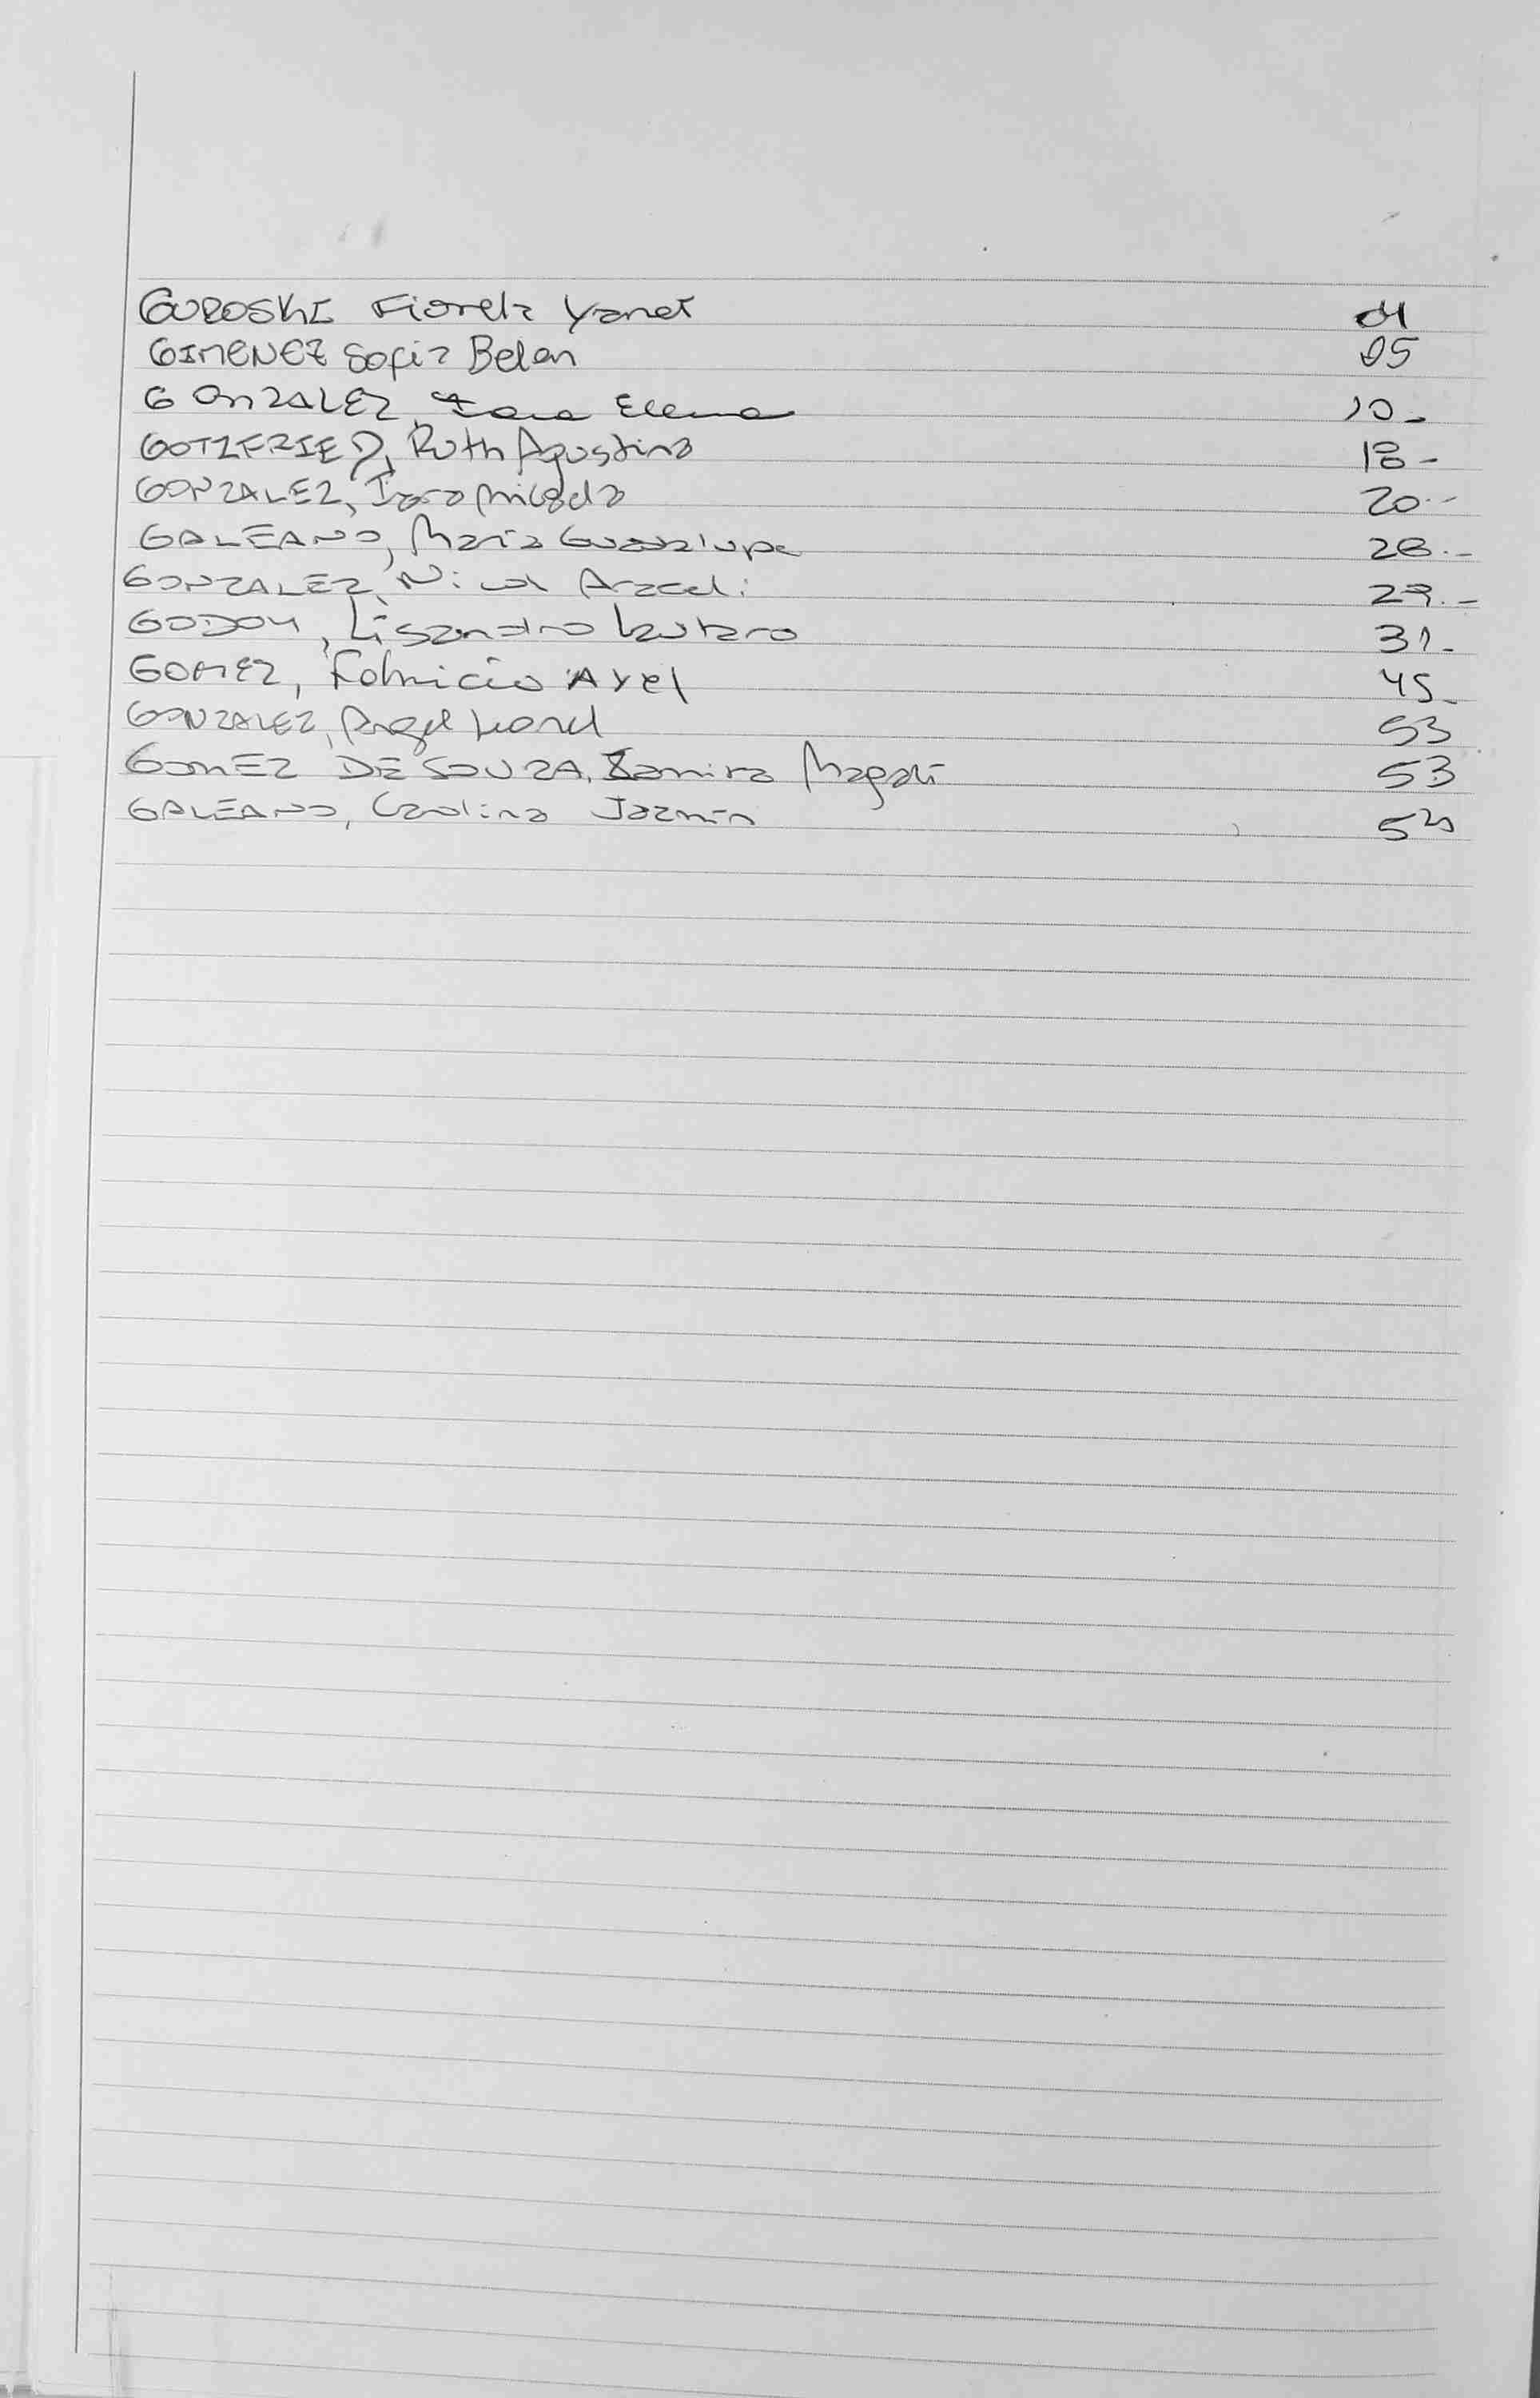 GUROSKI Fiorela Yanet 04
GIMENEZ Sofia Belen 05
GONZALEZ, Iara Elena 10-
GOTZFRIED, Ruth Agustina 18-
GONZALEZ, Iara Milagda 20.-
GALEANO, Maria Guadalupe 28.-
GONZALEZ, Nicol Araceli 29.-
GODOY, Lisandro Lautaro 31-
GOMEZ, Fabricio Axel 45-
GONZALEZ, Angel Leonel 53
GOMEZ DE SOUZA, Samira Magali 53
GALEANO, Carolina Jazmin